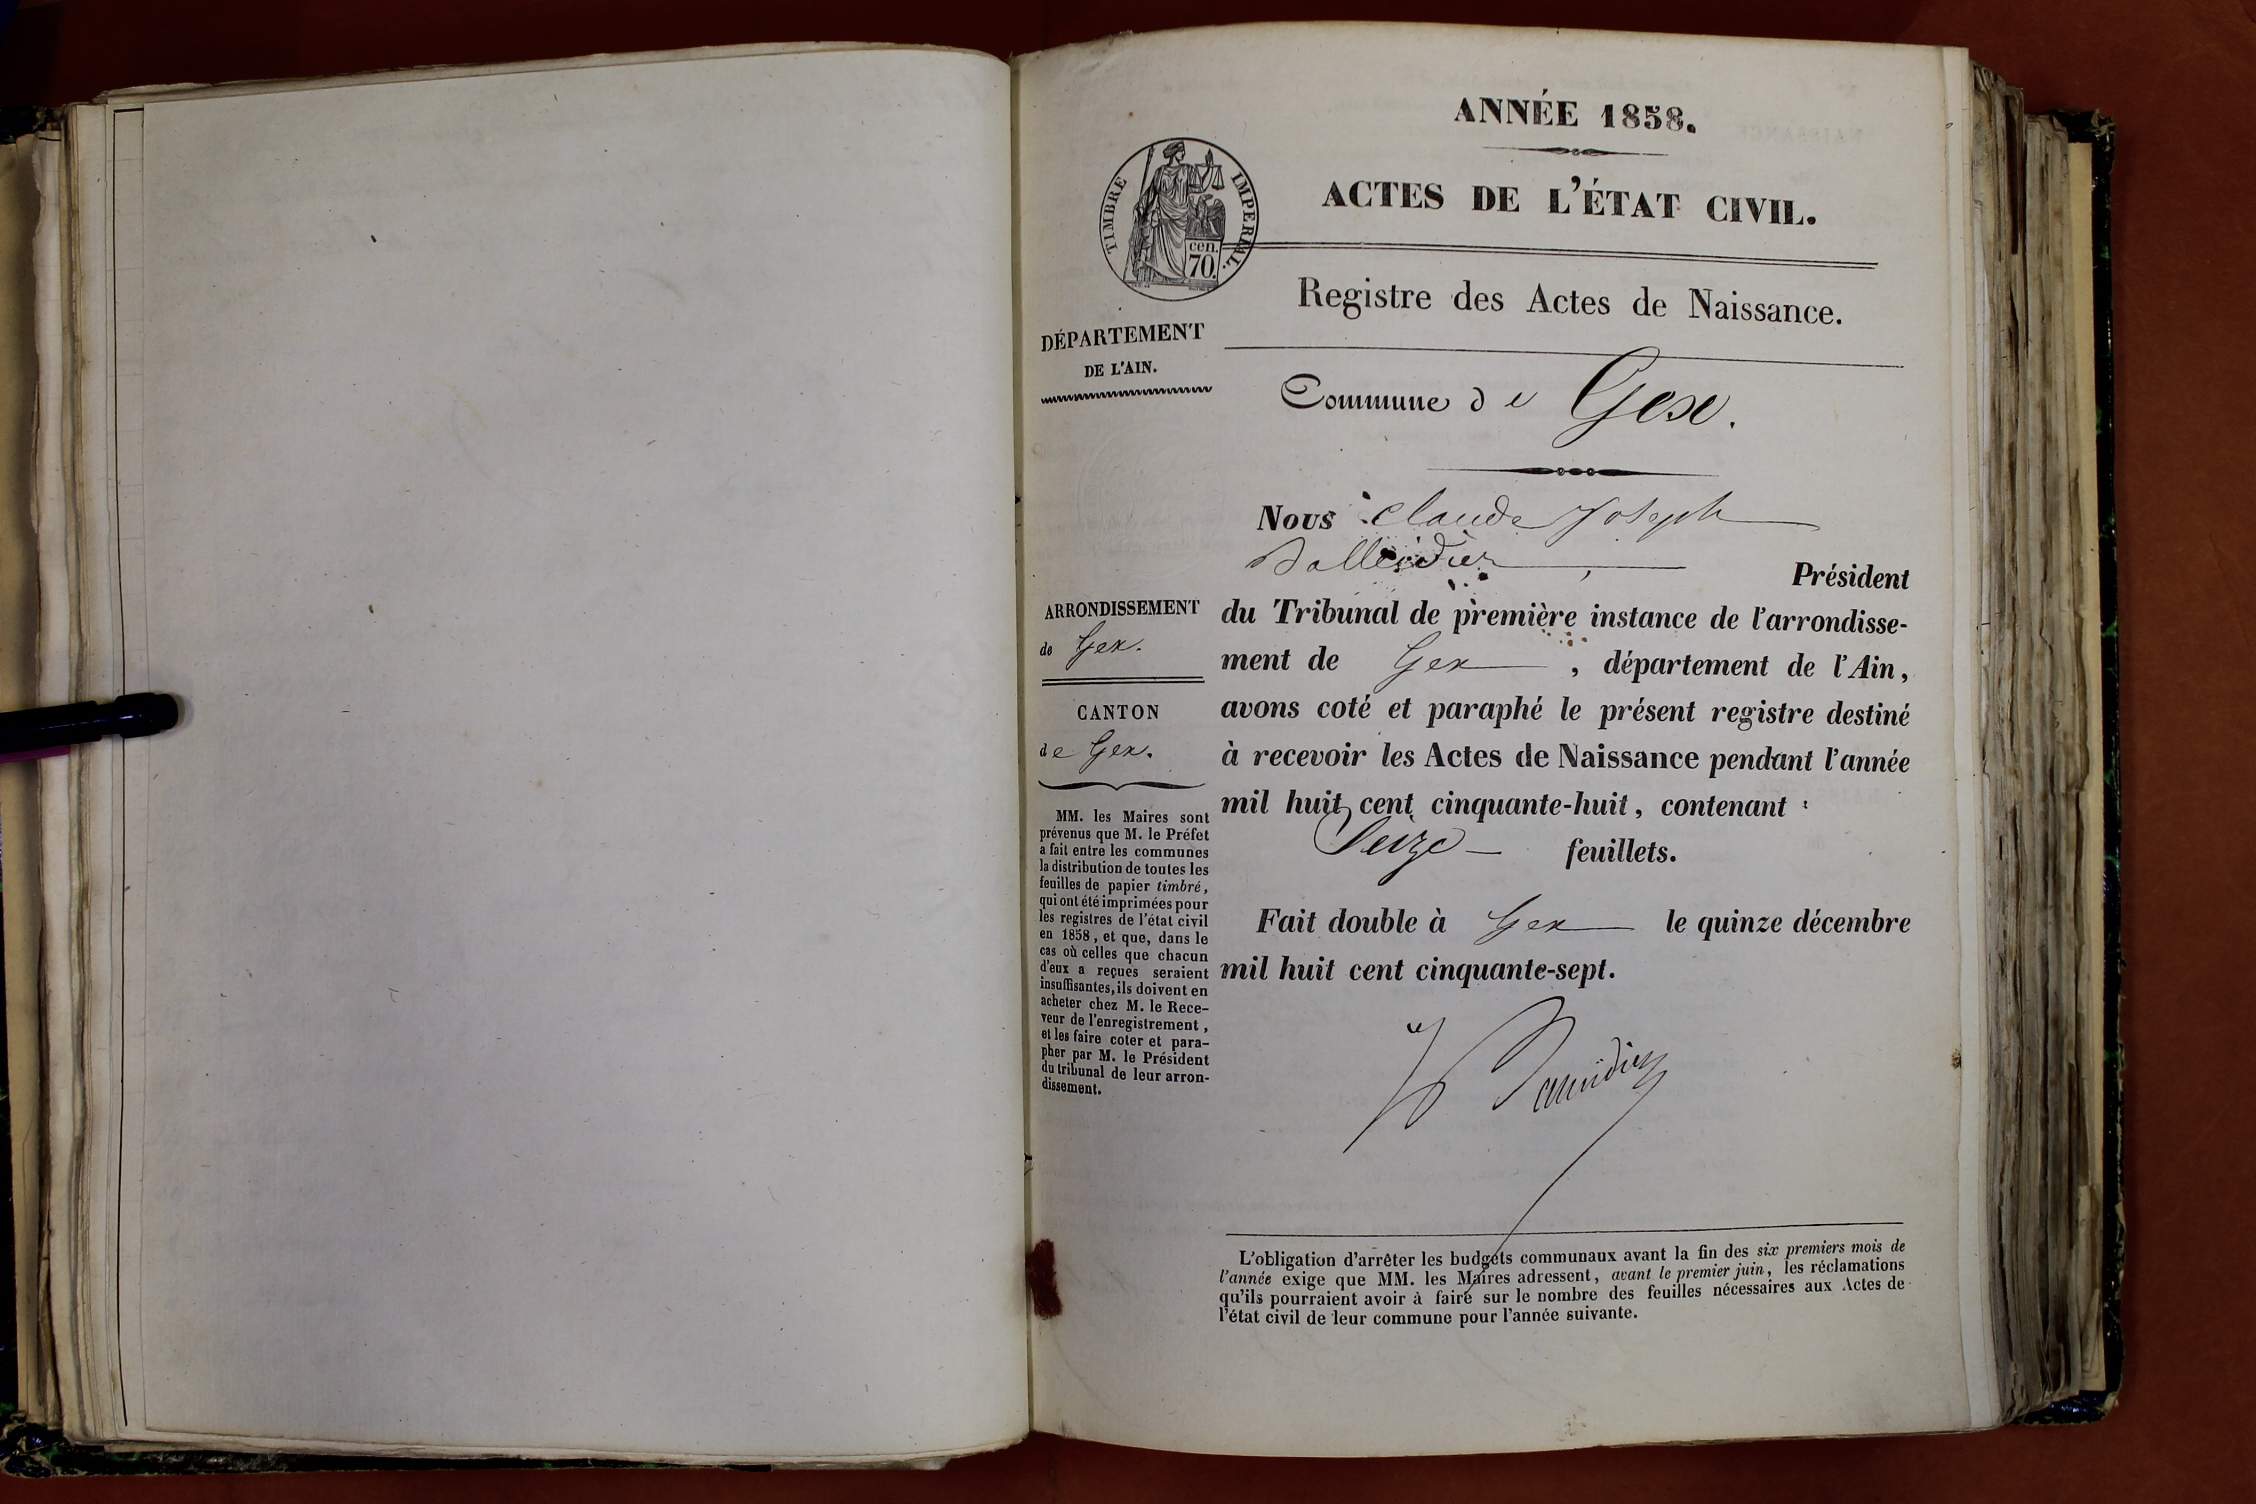 ANNÉE 1858.
ACTES DE L'ÉTAT CIVIL.
TIMBRE IMPERIAL.
cen.
70.
Registre des Actes de Naissance.
DÉPARTEMENT
DE L'AIN.
Commune de Gex.
Nous Claude Joseph
Président
du Tribunal de première instance de l'arrondisse-
ment de Gex, département de l'Ain,
avons coté et paraphé le présent registre destiné
à recevoir les Actes de Naissance pendant l'année
mil huit cent cinquante-huit, contenant
Seize feuillets.
Fait double à Gex le quinze décembre
mil huit cent cinquante-sept.
ARRONDISSEMENT
de Gex.
CANTON
de Gex.
MM. les Maires sont
prévenus que M. le Préfet
a fait entre les communes
la distribution de toutes les
feuilles de papier timbré,
qui ont été imprimées pour
les registres de l'état civil
en 1858, et que, dans le
cas où celles que chacun
d'eux a reçues seraient
insuffisantes, ils doivent en
acheter chez M. le Rece-
veur de l'enregistrement,
et les faire coter et para-
pher par M. le Président
du tribunal de leur arron-
dissement.
L'obligation d'arrêter les budgets communaux avant la fin des six premiers mois de
l'année exige que MM. les Maires adressent, avant le premier juin, les réclamations
qu'ils pourraient avoir à faire sur le nombre des feuilles nécessaires aux Actes de
l'état civil de leur commune pour l'année suivante.